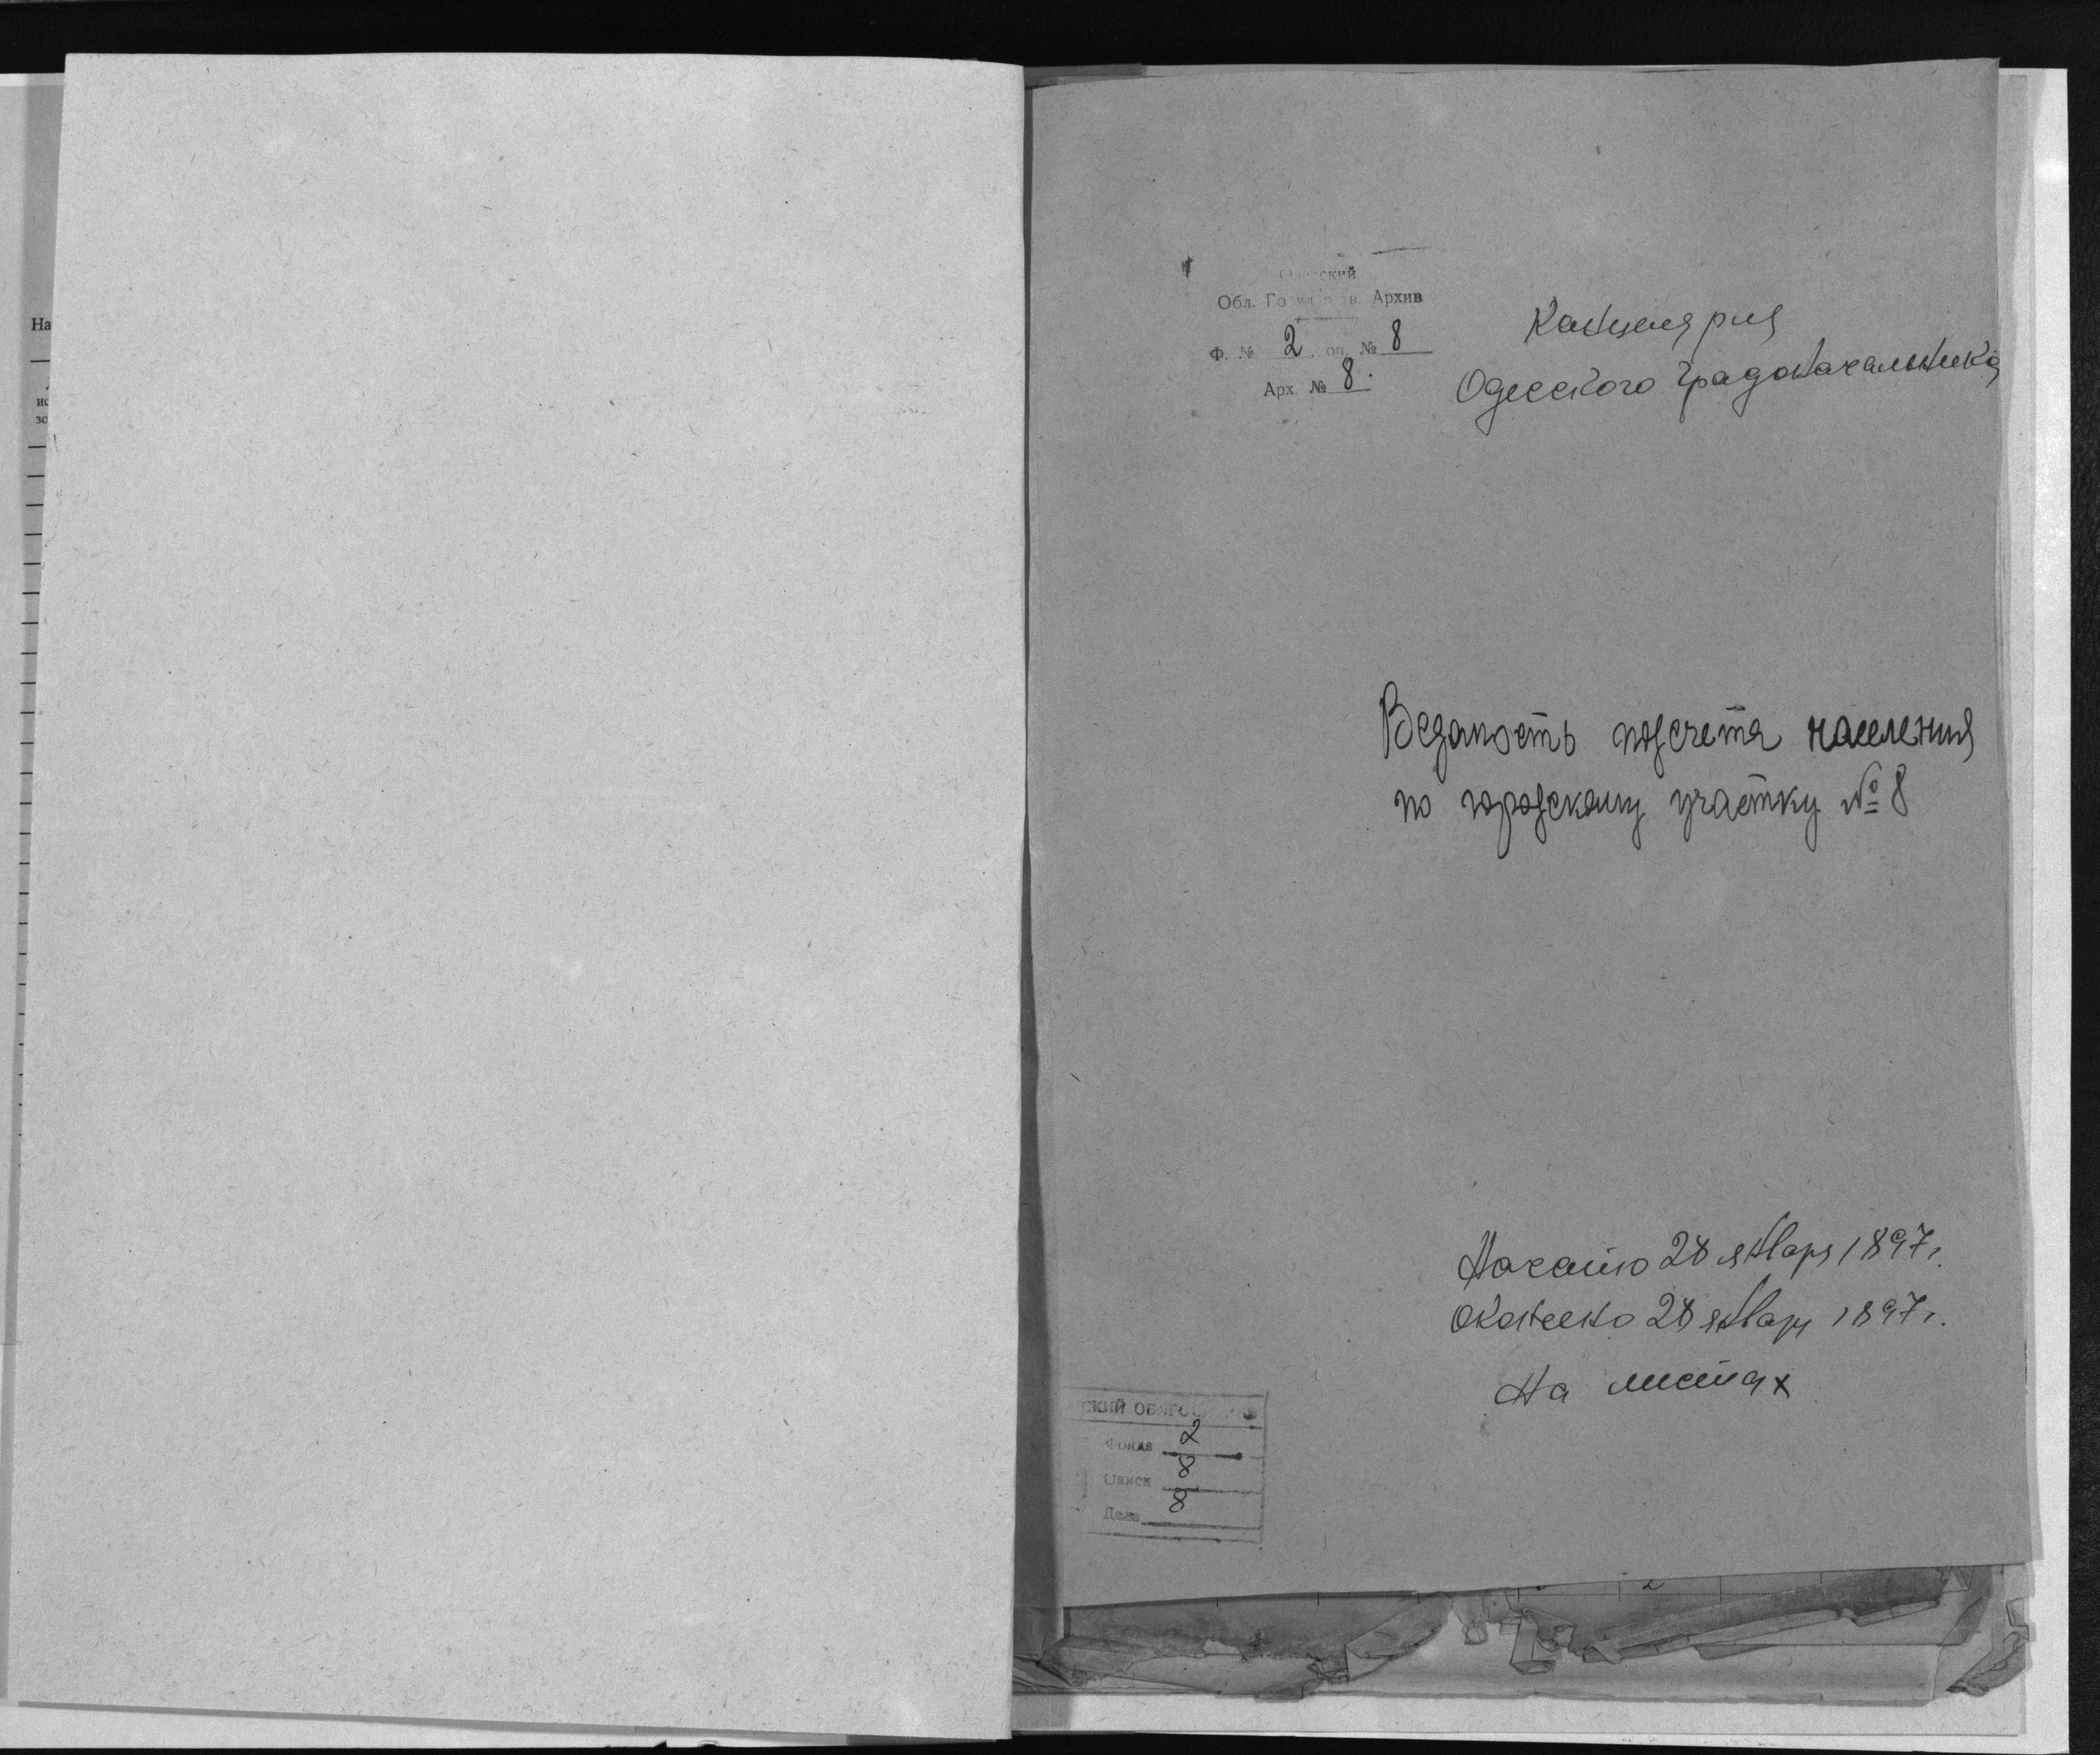 На
ис
зо
Одесский
Обл. Гос. Архив
Ф. № 2, оп. № 8
Арх. № 8.
Канцелярия
Одесского Градоначальника
Ведомость подсчета населения
по городскому участку № 8
Начато 28 января 1897 г.
Окончено 28 январ 1897 г.
На листах
СКИЙ ОБЛГОС
Фонда 2
Описи 8
Дела 8